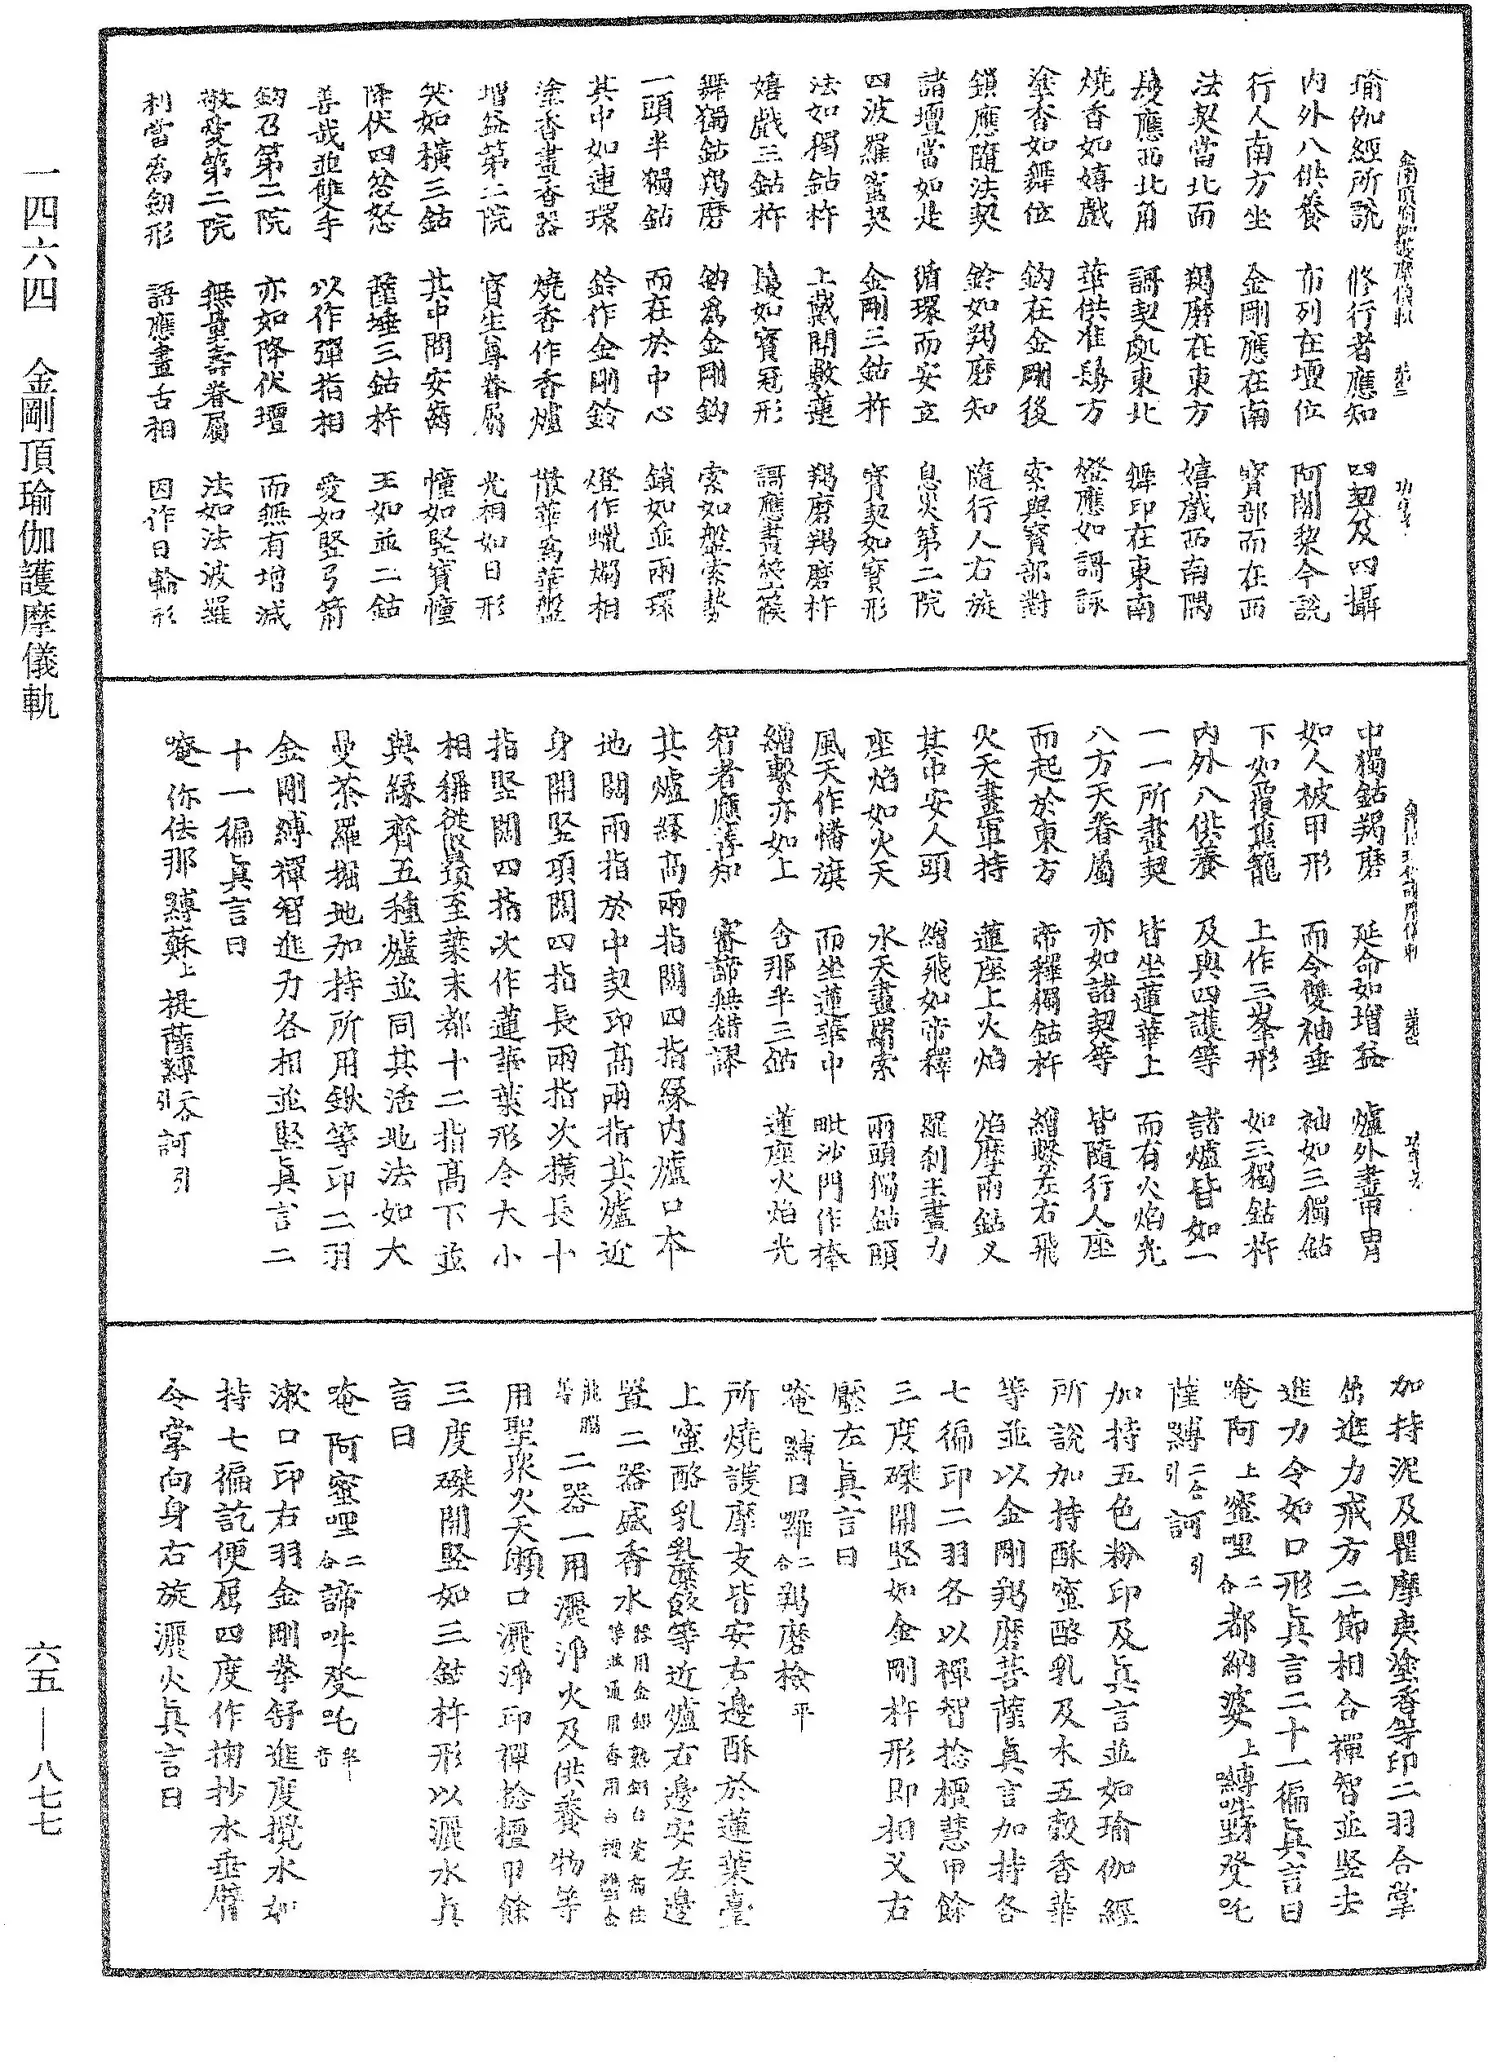 瑜伽經所說　修行者應知　四契及四攝
內外八供養　布列在壇位　阿闍梨今說
行人南方坐　金剛應在南　寳部而在西
法契當北面　羯磨在東方　嬉戲西南隅
鬘應西北角　謌契處東北　舞印在東南
燒香如嬉戲　華供准鬘方　燈應如謌詠
塗香如舞位　鈎在金剛後　索與寳部對
鎖應隨法契　鈴如羯磨知　隨行人右旋
諸壇當如是　循環而安立　息災第二院
四波羅蜜契　金剛三鈷杵　寳契如寳形
法如獨鈷杵　上戴開敷蓮　羯磨羯磨杵
嬉戲三鈷杵　鬘如寳冠形　謌應畫箜篌
舞獨鈷羯磨　鈎爲金剛鈎　索如盤索勢
一頭半獨鈷　而在於中心　鎖如並兩環
其中如連環　鈴作金剛鈴　燈作蠟燭相
塗香畫香器　燒香作香爐　散華爲華盤
增益第二院　寳生尊眷屬　光相如日形
笑如橫三鈷　其中間安齒　幢如竪寳幢
降伏四忿怒　薩埵三鈷杵　王如並二鈷
善哉並雙手　以作彈指相　愛如竪弓箭
鈎召第二院　亦如降伏壇　而無有增減
敬愛第二院　無量壽眷屬　法如法波羅
利當爲劒形　語應畫舌相　因作日輪形
中獨鈷羯磨　延命如增益　爐外畫甲冑
如人被甲形　而令雙袖垂　袖如三獨鈷
下如覆裏龍　上作三峯形　如三獨鈷杵
內外八供養　及與四護等　諸爐皆如一
一一所畫契　皆坐蓮華上　而有火焰光
八方天眷屬　亦如諸契等　皆隨行人座
而起於東方　帝釋獨鈷杵　繒繫左右飛
火天畫軍持　蓮座上火焰　焰摩兩鈷叉
其中安人頭　繒飛如帝釋　羅刹主畫刀
座焰如火天　水天畫羂索　兩頭獨鈷頭
風天作幡旗　而坐蓮華中　毗沙門作棒
繒繫亦如上　舍那半三鈷　蓮座火焰光
智者應善知　審諦無錯謬
其爐緣高兩指闊四指緣內爐口本
地闊兩指於中契印高兩指其爐近
身開竪項闊四指長兩指次橫長十
指竪闊四指次作蓮華葉形令大小
相稱從爐頸至葉末都十二指高下並
與緣齊五種爐並同其活地法如大
曼茶羅掘地加持所用鍬等印二羽
金剛縛禪智進力各相並竪眞言二
十一徧眞言曰
唵 你佉那縛蘇上提薩縛二合引訶引
加持泥及瞿摩夷塗香等印二羽合掌
屈進力戒方二節相合禪智並竪去
進力令如口形眞言二十一徧眞言曰
唵阿上蜜哩二合都納婆上縛吽發吒
薩縛二合引訶引
加持五色粉印及眞言並如瑜伽經
所說加持酥蜜酪乳及木五穀香華
等並以金剛羯磨菩薩眞言加持各
七徧印二羽各以禪智捻檀慧甲餘
三度磔開竪如金剛杵形即相叉右
壓左眞言曰
唵 縛日囉二合羯磨檢平
所燒護摩支皆安右邊酥於蓮葉臺
上蜜酪乳乳糜飯等近爐右邊安左邊
置二器盛香水器用金銀熟銅白瓷商佉等並通用香用白檀鬱金
龍腦等 二器一用灑淨火及供養物等
用聖衆火天嚬口灑淨印禪捻檀甲餘
三度磔開竪如三鈷杵形以灑水眞
言曰
唵 阿蜜哩二合諦吽發吒半音
漱口印右羽金剛拳舒進度攪水如
持七徧訖便屈四度作掬抄水垂臂
令掌向身右旋灑火眞言曰
一四六四　金剛頂瑜伽護摩儀軌
六五——八七七